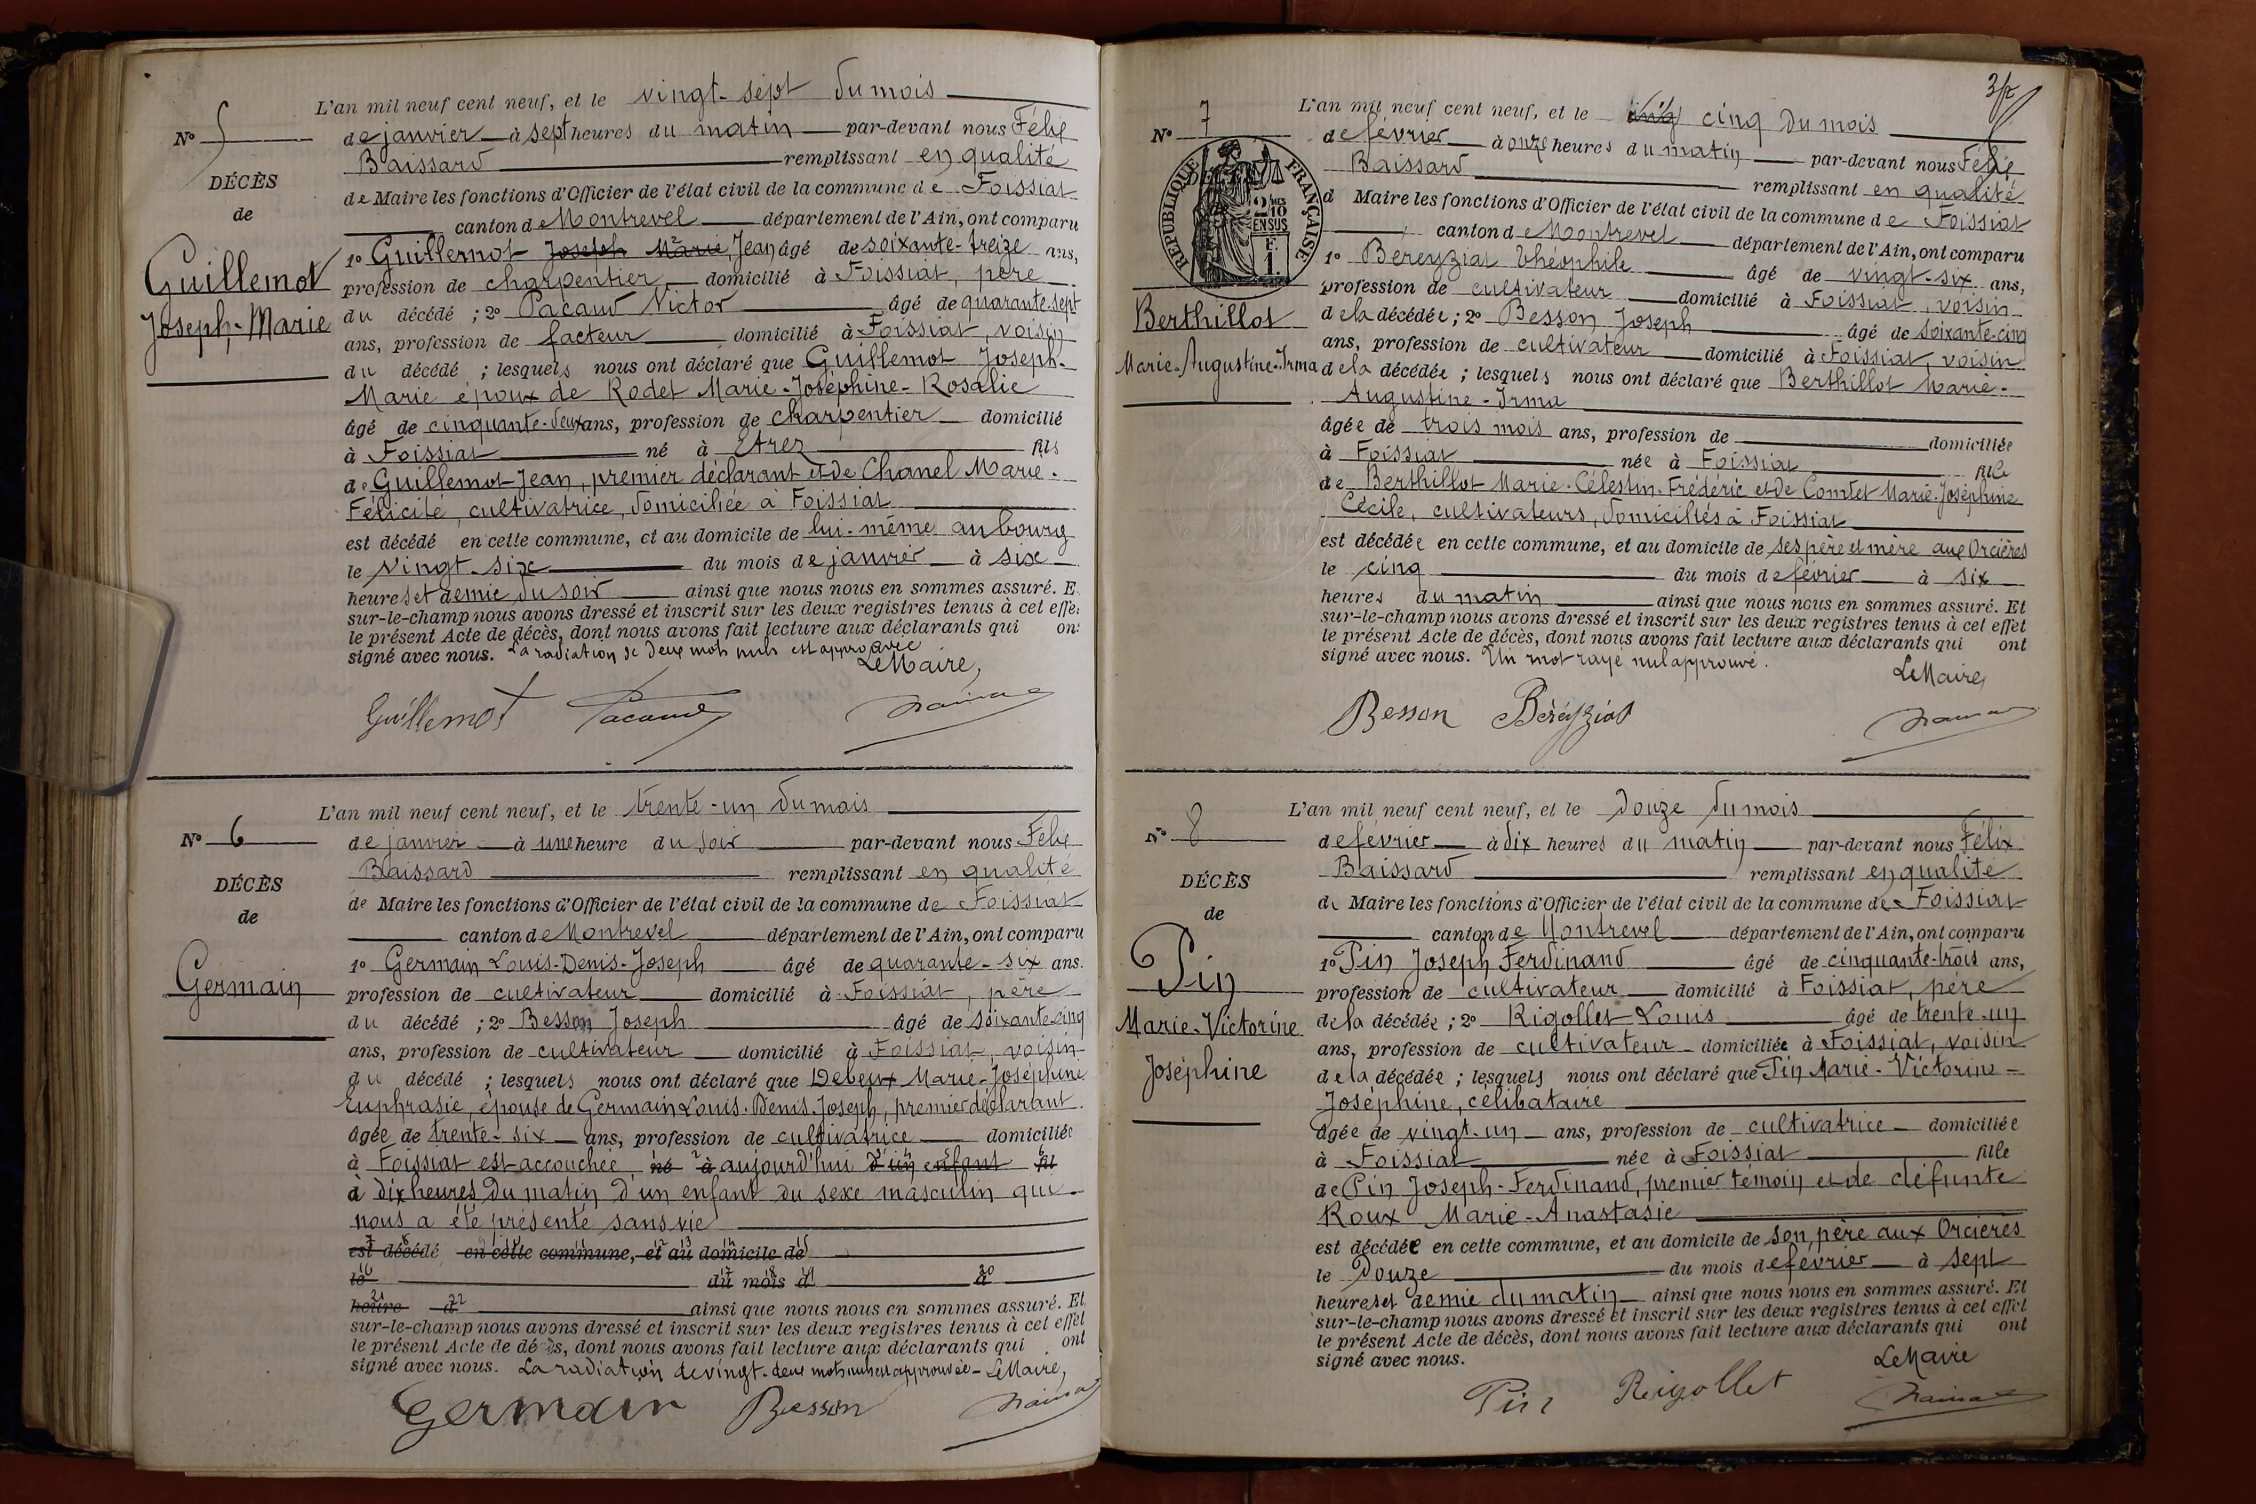 L'an mil neuf cent neuf, et le vingt-sept du mois
N° 5
de janvier à sept heures du matin par-devant nous Félix
Baissard remplissant en qualité
DÉCÈS
de Maire les fonctions d'Officier de l'état civil de la commune de Foissiat
de
canton de Montrevel département de l'Ain, ont comparu
1° Guillemot Joseph Marie Jean âgé de soixante-treize ans,
Guillemot
profession de charpentier domicilié à Foissiat, père
Joseph-Marie
du décédé ; 2° Pacaud Victor âgé de quarante-sept
ans, profession de facteur domicilié à Foissiat, voisin
du décédé ; lesquels nous ont déclaré que Guillemot Joseph-
Marie époux de Rodet Marie-Joséphine-Rosalie
âgé de cinquante-deux ans, profession de charpentier domicilié
à Foissiat né à Etrez fils
de Guillemot Jean, premier déclarant et de Chanel Marie-
Félicité, cultivatrice, domiciliée à Foissiat
est décédé en cette commune, et au domicile de lui-même au bourg
le vingt-six du mois de janvier à six
heures et demie du soir ainsi que nous nous en sommes assuré. E
sur-le-champ nous avons dressé et inscrit sur les deux registres tenus à cet effe
le présent Acte de décès, dont nous avons fait lecture aux déclarants qui on
signé avec nous. La radiation de deux mots nuls est approuvée
Le Maire,
Guillemot Pacaud
L'an mil neuf cent neuf, et le trente-un du mois
N° 6
de janvier à une heure du soir par-devant nous Félix
Baissard remplissant en qualité
DÉCÈS
de Maire les fonctions d'Officier de l'état civil de la commune de Foissiat
de
canton de Montrevel département de l'Ain, ont comparu
1° Germain Louis-Denis-Joseph âgé de quarante-six ans.
Germain
profession de cultivateur domicilié à Foissiat, père
du décédé ; 2° Besson Joseph âgé de soixante-cinq
ans, profession de cultivateur domicilié à Foissiat, voisin
du décédé ; lesquels nous ont déclaré que Debeux Marie-Joséphine
Euphrasie, épouse de Germain Louis-Denis-Joseph, premier déclarant.
âgée de trente-six ans, profession de cultivatrice domiciliée
à Foissiat est accouchée né à aujourd'hui d'un enfant fil
à dix heures du matin d'un enfant du sexe masculin qui
nous a été présenté sans vie
est décédé en cette commune, et au domicile de
le du mois d à
heure d ainsi que nous nous en sommes assuré. Et
sur-le-champ nous avons dressé et inscrit sur les deux registres tenus à cet effet
le présent Acte de décès, dont nous avons fait lecture aux déclarants qui ont
signé avec nous. La radiation de vingt-deux mots nuls est approuvée - Le Maire,
Germain Besson
L'an mil neuf cent neuf, et le cinq cinq du mois
N° 7
de février à onze heures du matin par-devant nous Félix
Baissard remplissant en qualité
RÉPUBLIQUE FRANÇAISE
2/10 EN SUS
F. 1
d Maire les fonctions d'Officier de l'état civil de la commune de Foissiat
canton de Montrevel département de l'Ain, ont comparu
1° Béreyziat Théophile âgé de vingt-six ans,
profession de cultivateur domicilié à Foissiat, voisin
Berthillot
de la décédée ; 2° Besson Joseph âgé de soixante-cinq
ans, profession de cultivateur domicilié à Foissiat, voisin
Marie-Augustine-Irma
de la décédée ; lesquels nous ont déclaré que Berthillot Marie-
Augustine-Irma
âgée de trois mois ans, profession de domiciliée
à Foissiat née à Foissiat fille
de Berthillot Marie-Célestin-Frédéric et de Comtet Marie-Joséphine
Cécile, cultivateurs, domiciliés à Foissiat
est décédée en cette commune, et au domicile de ses père et mère aux Orcières
le cinq du mois de février à six
heures du matin ainsi que nous nous en sommes assuré. Et
sur-le-champ nous avons dressé et inscrit sur les deux registres tenus à cet effet
le présent Acte de décès, dont nous avons fait lecture aux déclarants qui ont
signé avec nous. Un mot rayé nul approuvé.
Le Maire,
Besson Béréyziat
L'an mil neuf cent neuf, et le douze du mois
N° 8
de février à dix heures du matin par-devant nous Félix
Baissard remplissant en qualité
DÉCÈS
de Maire les fonctions d'Officier de l'état civil de la commune de Foissiat
de
canton de Montrevel département de l'Ain, ont comparu
1° Pin Joseph Ferdinand âgé de cinquante-trois ans,
Pin
profession de cultivateur domicilié à Foissiat, père
Marie-Victorine
de la décédée ; 2° Rigollet Louis âgé de trente-un
ans, profession de cultivateur domiciliée à Foissiat, voisin
Joséphine
de la décédée ; lesquels nous ont déclaré que Pin Marie-Victorine-
Joséphine, célibataire
âgée de vingt-un ans, profession de cultivatrice domiciliée
à Foissiat née à Foissiat fille
de Pin Joseph-Ferdinand, premier témoin et de défunte
Roux Marie-Anastasie
est décédée en cette commune, et au domicile de son père aux Orcières
le douze du mois de février à sept
heures et demie du matin ainsi que nous nous en sommes assuré. Et
sur-le-champ nous avons dressé et inscrit sur les deux registres tenus à cet effet
le présent Acte de décès, dont nous avons fait lecture aux déclarants qui ont
signé avec nous.
Le Maire
Pin Rigollet